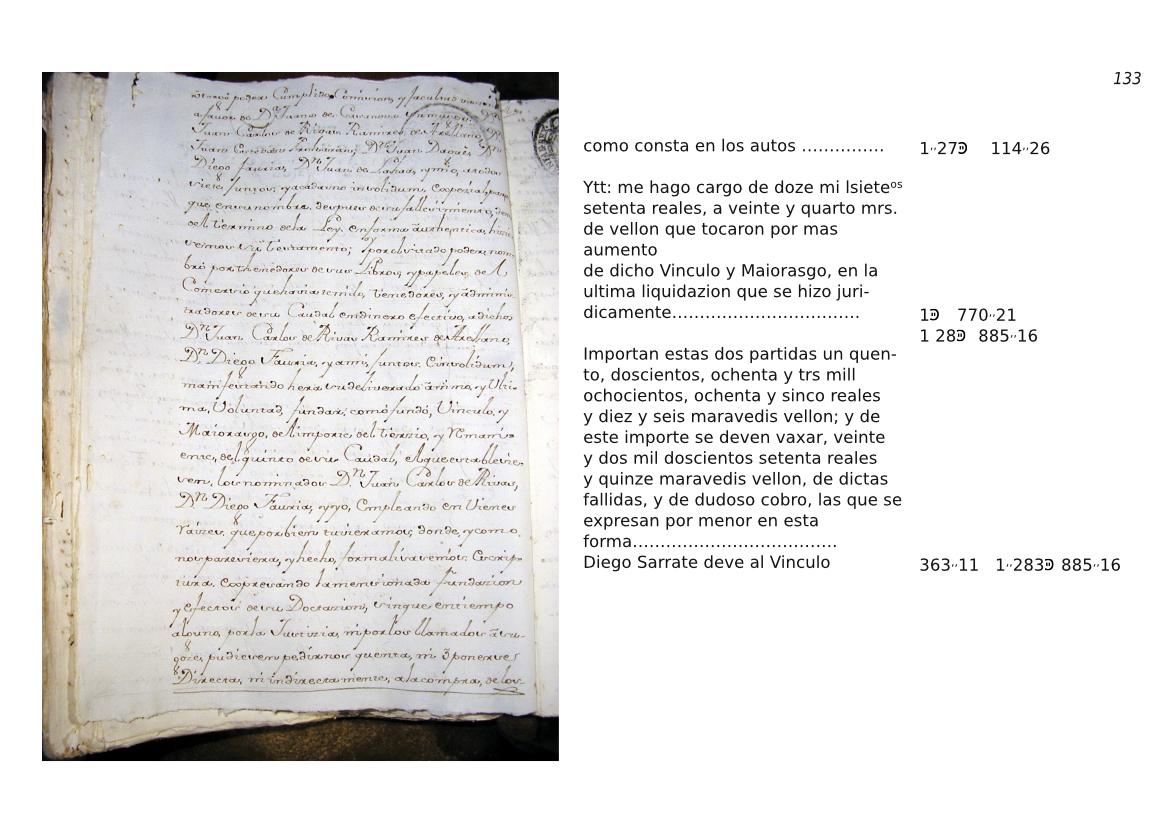 133
otorgó poder Cumplido, Comision, y facultad
a favor de D.ª Juana de Casanova
Juan Carlos de Rivas Ramires de Arellano, Dn
Juan Estevan Dn Juan Daoues, Dn
Diego fauria, Dn Juan de y mio, a todos
siete juntos, y acadauno in volidum,
que en su nombre, despues de su fallesimiento,
del termino de la Ley, en forma authentica,
vemos su Testamento; y por el sitado poder nom
bró por thenedores de sus Libros, y papeles, del
Comersio que havia tenido, tenedores, y adminis
tradores de su Caudal en dinero efectivo, a dichos
Dn Juan Carlos de Rivas Ramires de Arellano,
Dn Diego Fauria, y a mi, juntos, e involidum,
manifestando hera su deliverado animo, y Ulti-
ma, Voluntad, fundar, como fundó, Vinculo, y
Maiorasgo, del importe del tersio, y Rmani=
ente, del quinto de su Caudal, el que establesie=
sen, los nominados Dn Juan Carlos de Rivas,
Dn Diego Fauria, y yo, Empleando en Vienes
raizes, que por bien tuvieramos, donde, y como
nos paresiera, y hecho, formalisasemos Escrip=
tura, expresando la mensionada fundasion
y efectos de su Dotasion, sin que en tiempo
alguno, por la Justizia, ni por los llamados a su
gose, pudiesen pedirnos quenta, ni oponerse
Directa, ni indirectamente, a la compra, de los
como consta en los autos ............... 1··27Ð 114··26
Ytt: me hago cargo de doze mi lsieteᵒˢ
setenta reales, a veinte y quarto mrs.
de vellon que tocaron por mas
aumento
de dicho Vinculo y Maiorasgo, en la
ultima liquidazion que se hizo juri-
dicamente.................................. 1Ð 770··21
1 28Ð 885··16
Importan estas dos partidas un quen-
to, doscientos, ochenta y trs mill
ochocientos, ochenta y sinco reales
y diez y seis maravedis vellon; y de
este importe se deven vaxar, veinte
y dos mil doscientos setenta reales
y quinze maravedis vellon, de dictas
fallidas, y de dudoso cobro, las que se
expresan por menor en esta
forma.....................................
Diego Sarrate deve al Vinculo 363··11 1··283Ð 885··16